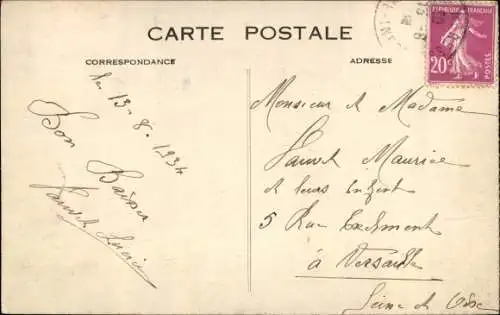 CARTE POSTALE
CORRESPONDANCE
ADRESSE
REPUBLIQUE FRANÇAISE
20c
POSTES
Le 13-8-1934
Bon
Baiser
Monsieur et Madame
Maurice
et leurs enfant
5 Rue
à Versailles
Seine et Oise